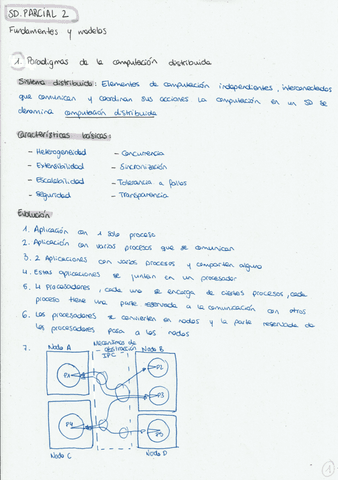 SD. PARCIAL 2
Fundamentos y modelos
1. Paradigmas de la computación distribuida
Sistema distribuido: Elementos de computación independientes, interconectados
que comunican y coordinan sus acciones. La computación en un SD se
denomina computación distribuida
Características básicas:
- Heterogeneidad - Concurrencia
- Extensibilidad - Sincronización
- Escalabilidad - Tolerancia a fallos
- Seguridad - Transparencia
Evolución
1. Aplicación con 1 solo proceso
2. Aplicación con varios procesos que se comunican
3. 2 Aplicaciones con varios procesos y comparten alguno
4. Estas aplicaciones se juntan en un procesador
5. 4 Procesadores, cada uno se encarga de ciertos procesos, cada
proceso tiene una parte reservada a la comunicación con otros
6. Los procesadores se convierten en nodos y la parte reservada de
los procesadores pasa a los nodos
7. Nodo A Mecanismo de abstracción IPC Nodo B
P1 P2
P3
P4 P5
Nodo C Nodo D
1